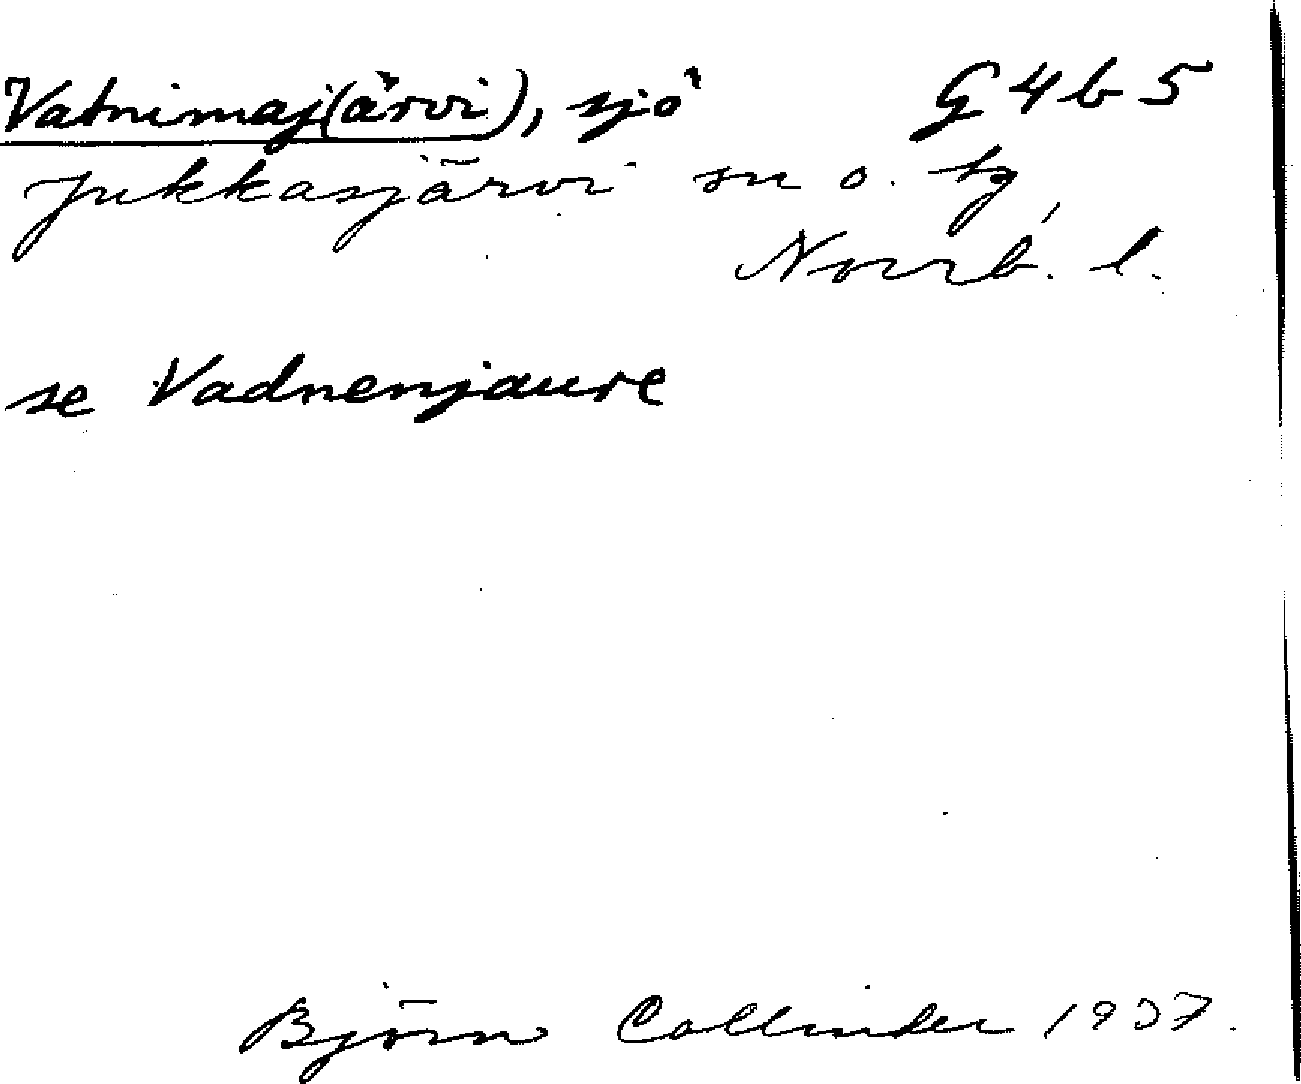 Vatnimaj(ärvi), sjö G4b5
Jukkasjärvi sn o. tg
Norrb. l.
se Vadnenjaure
Björn Collinder 1937.